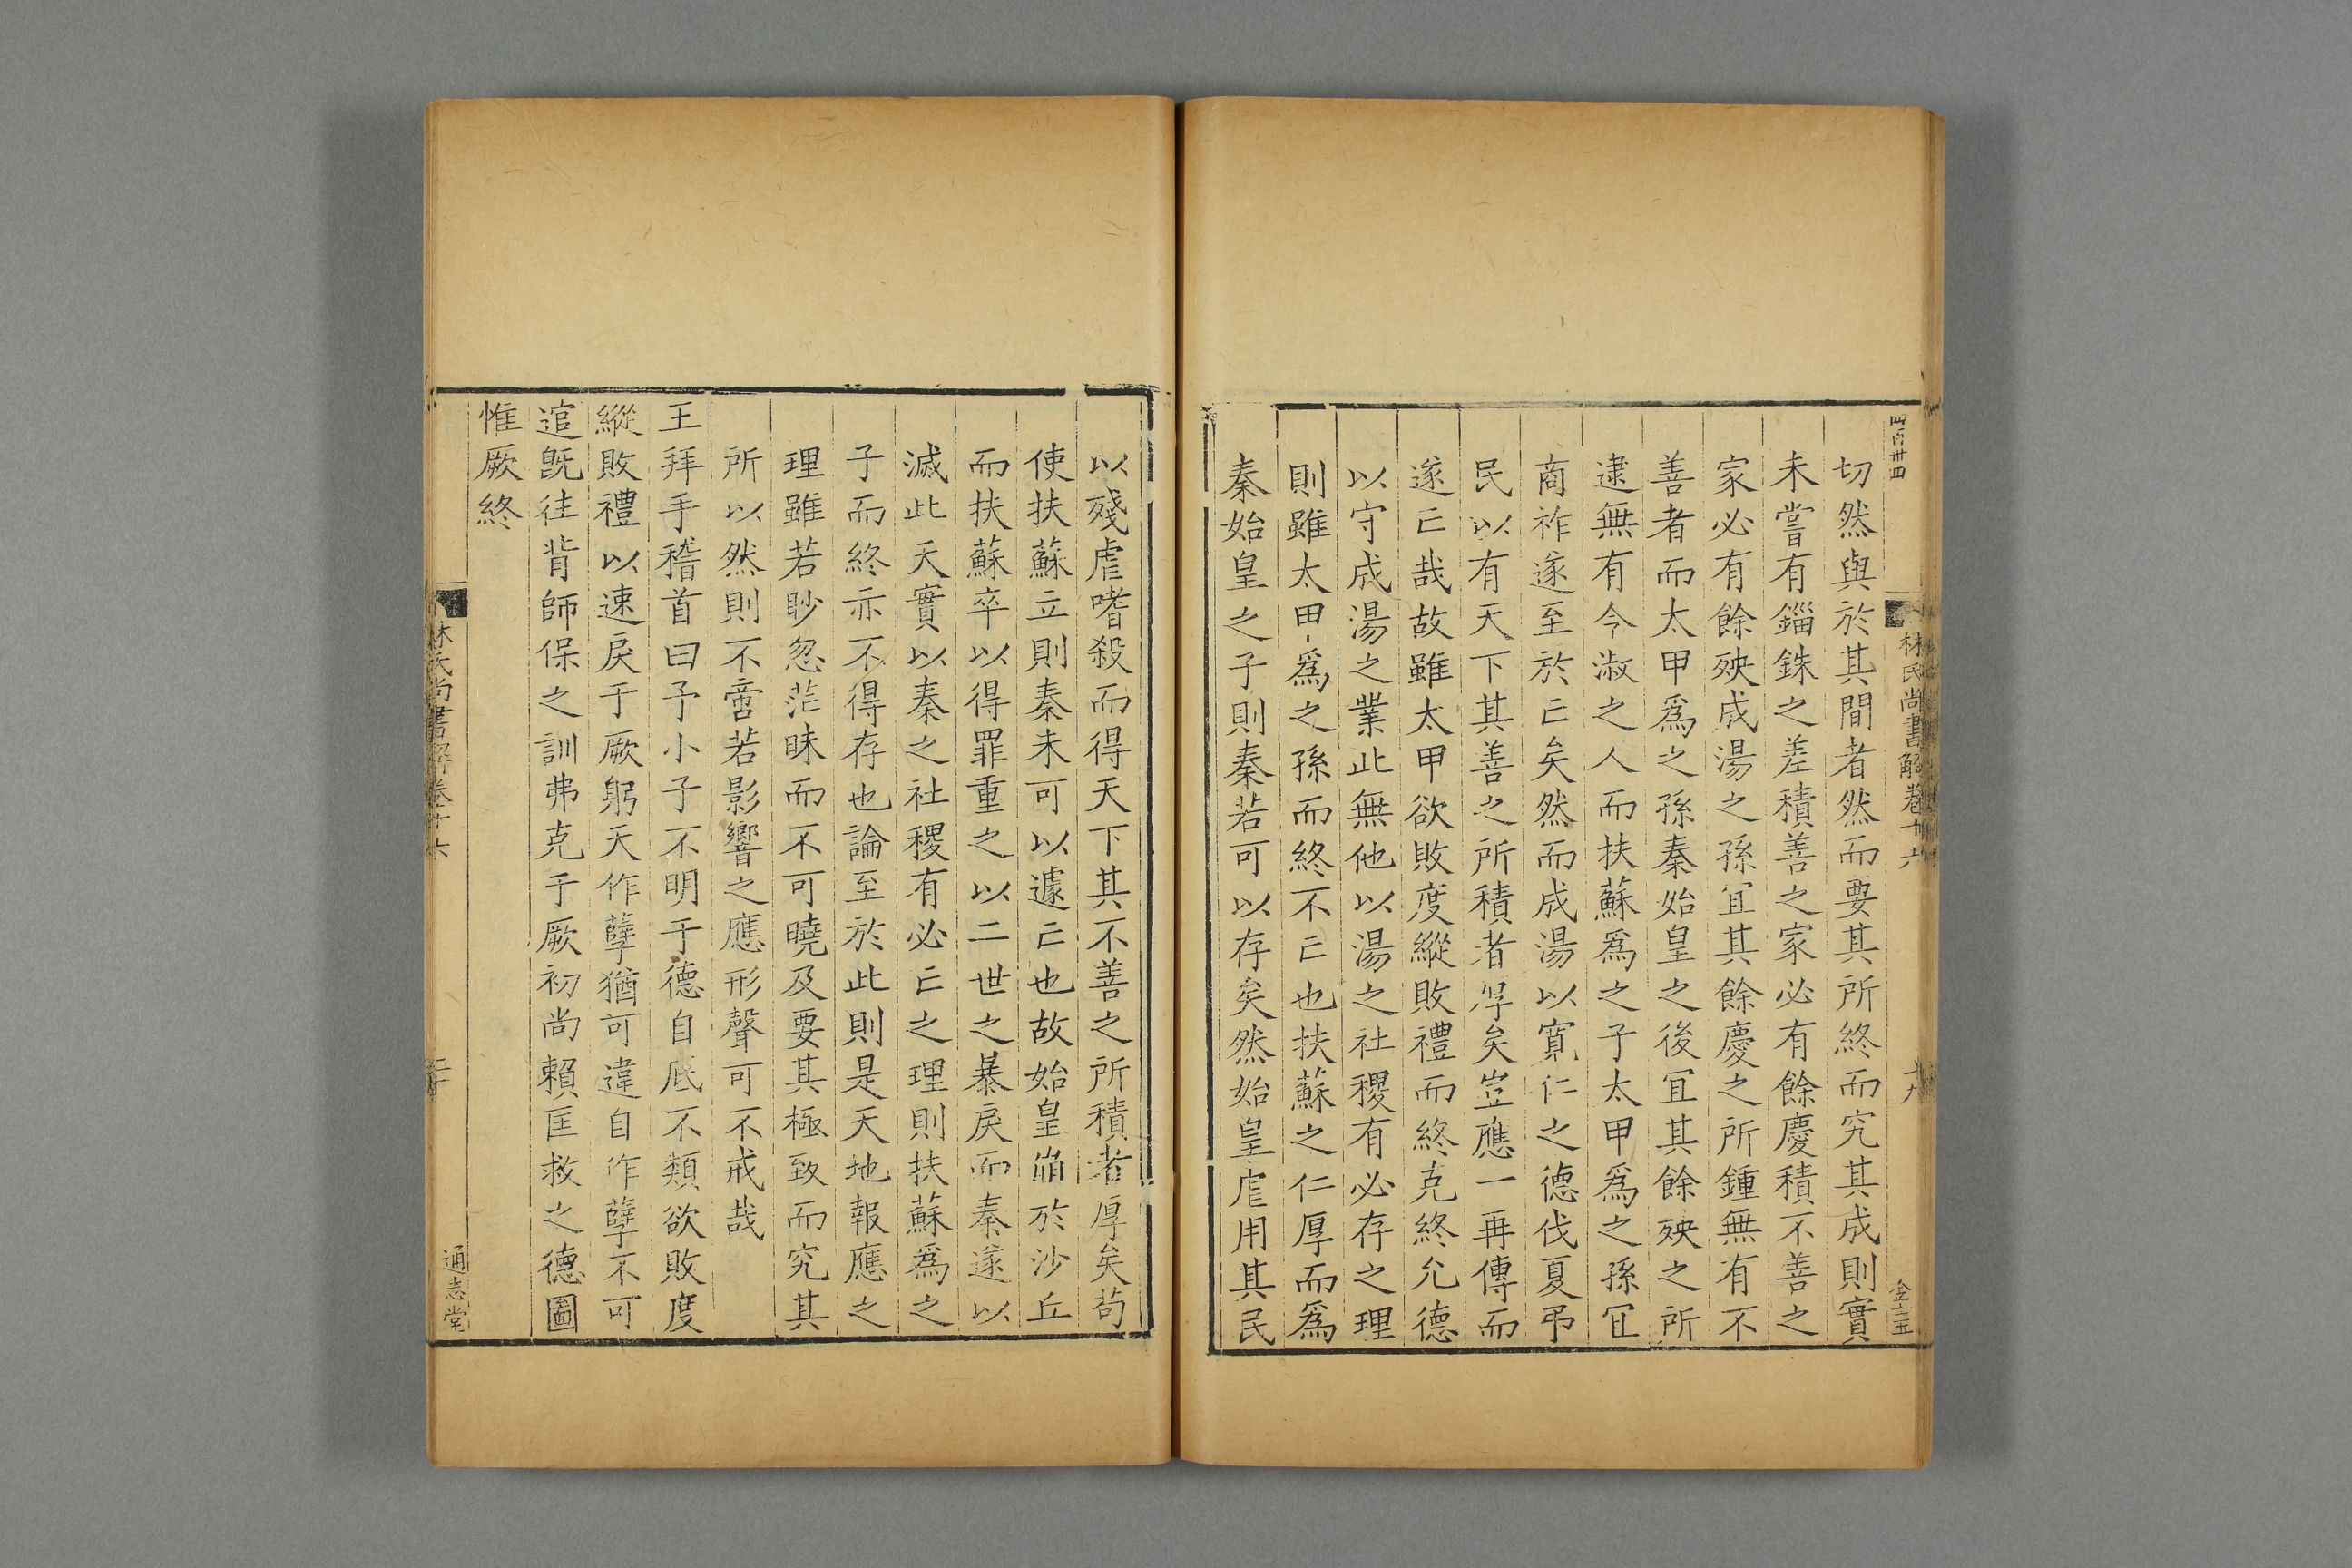 四百卅四
林氏尚書解卷十六
十九
金士玉
切然與於其間者然而要其所終而究其成則實
未嘗有錙銖之差積善之家必有餘慶積不善之
家必有餘殃成湯之孫宜其餘慶之所鍾無有不
善者而太甲爲之孫秦始皇之後宜其餘殃之所
逮無有令淑之人而扶蘇爲之子太甲爲之孫宜
商祚遂至於亡矣然而成湯以寬仁之德伐夏弔
民以有天下其善之所積者厚矣豈應一再傳而
遂亡哉故雖太甲欲敗度縱敗禮而終克終允德
以守成湯之業此無他以湯之社稷有必存之理
則雖太甲爲之孫而終不亡也扶蘇之仁厚而爲
秦始皇之子則秦若可以存矣然始皇虐用其民
以殘虐嗜殺而得天下其不善之所積者厚矣茍
使扶蘇立則秦未可以遽亡也故始皇崩於沙丘
而扶蘇卒以得罪重之以二世之暴戾而秦遂以
滅此天實以秦之社稷有必亡之理則扶蘇爲之
子而終亦不得存也論至於此則是天地報應之
理雖若眇忽茫昧而不可曉及要其極致而究其
所以然則不啻若影響之應形聲可不戒哉
王拜手稽首曰予小子不明于德自厎不類欲敗度
縱敗禮以速戾于厥躬天作孽猶可違自作孽不可
逭旣往背師保之訓弗克于厥初尚賴匡救之德圖
惟厥終
林氏尚書解卷十六
二十
通志堂